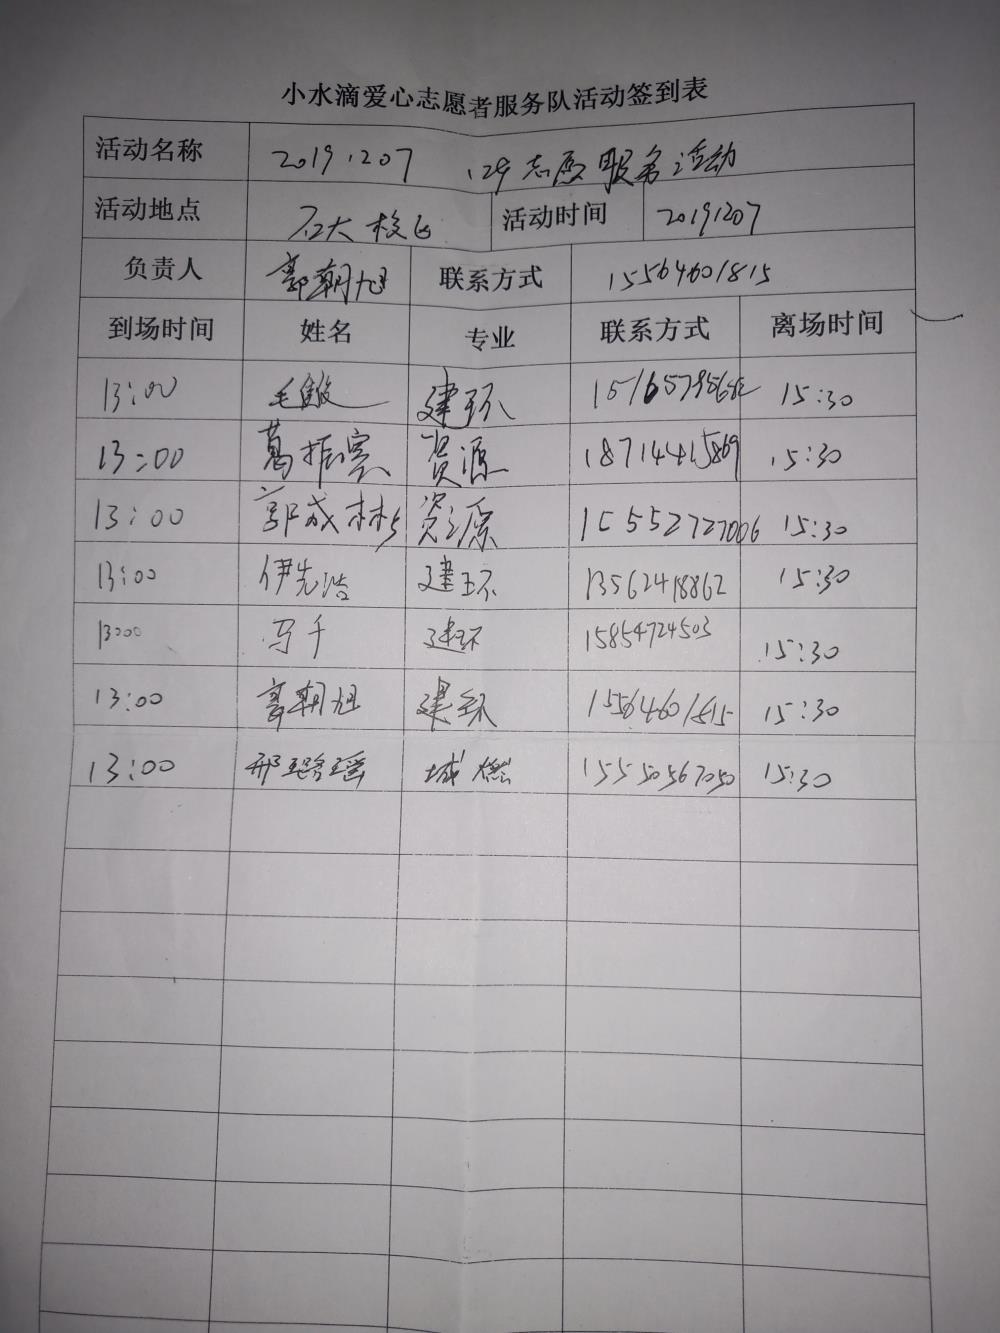 小水滴爱心志愿者服务队活动签到表
活动名称 2019.1207 .129志愿服务活动
活动地点 石大校区 活动时间 20191207
负责人 郭朝旭 联系方式 15564601815
到场时间 姓名 专业 联系方式 离场时间
13:00 毛 建环 15:30
13:00 葛振宾 资源 18714415869 15:30
13:00 郭成彬 资源 15552727006 15:30
13:00 伊先浩 建环 13562418862 15:30
13:00 马千 建环 15854724503 15:30
13:00 郭朝旭 建环 15564601815 15:30
13:00 邢璐瑶 城燃 15550567050 15:30